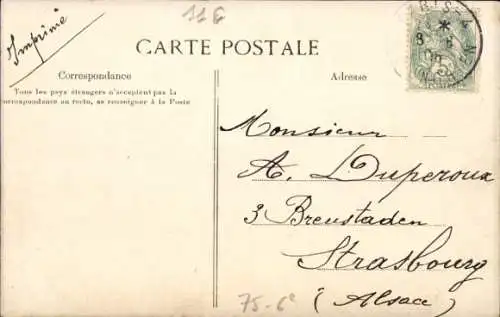 Imprimé
116
CARTE POSTALE
Correspondance
Tous les pays étrangers n'acceptent pas la
correspondance au recto, se renseigner à la Poste
Adresse
Monsieur
A. Duperoux
3 Breustaden
Strasbourg
(Alsace)
75-6e